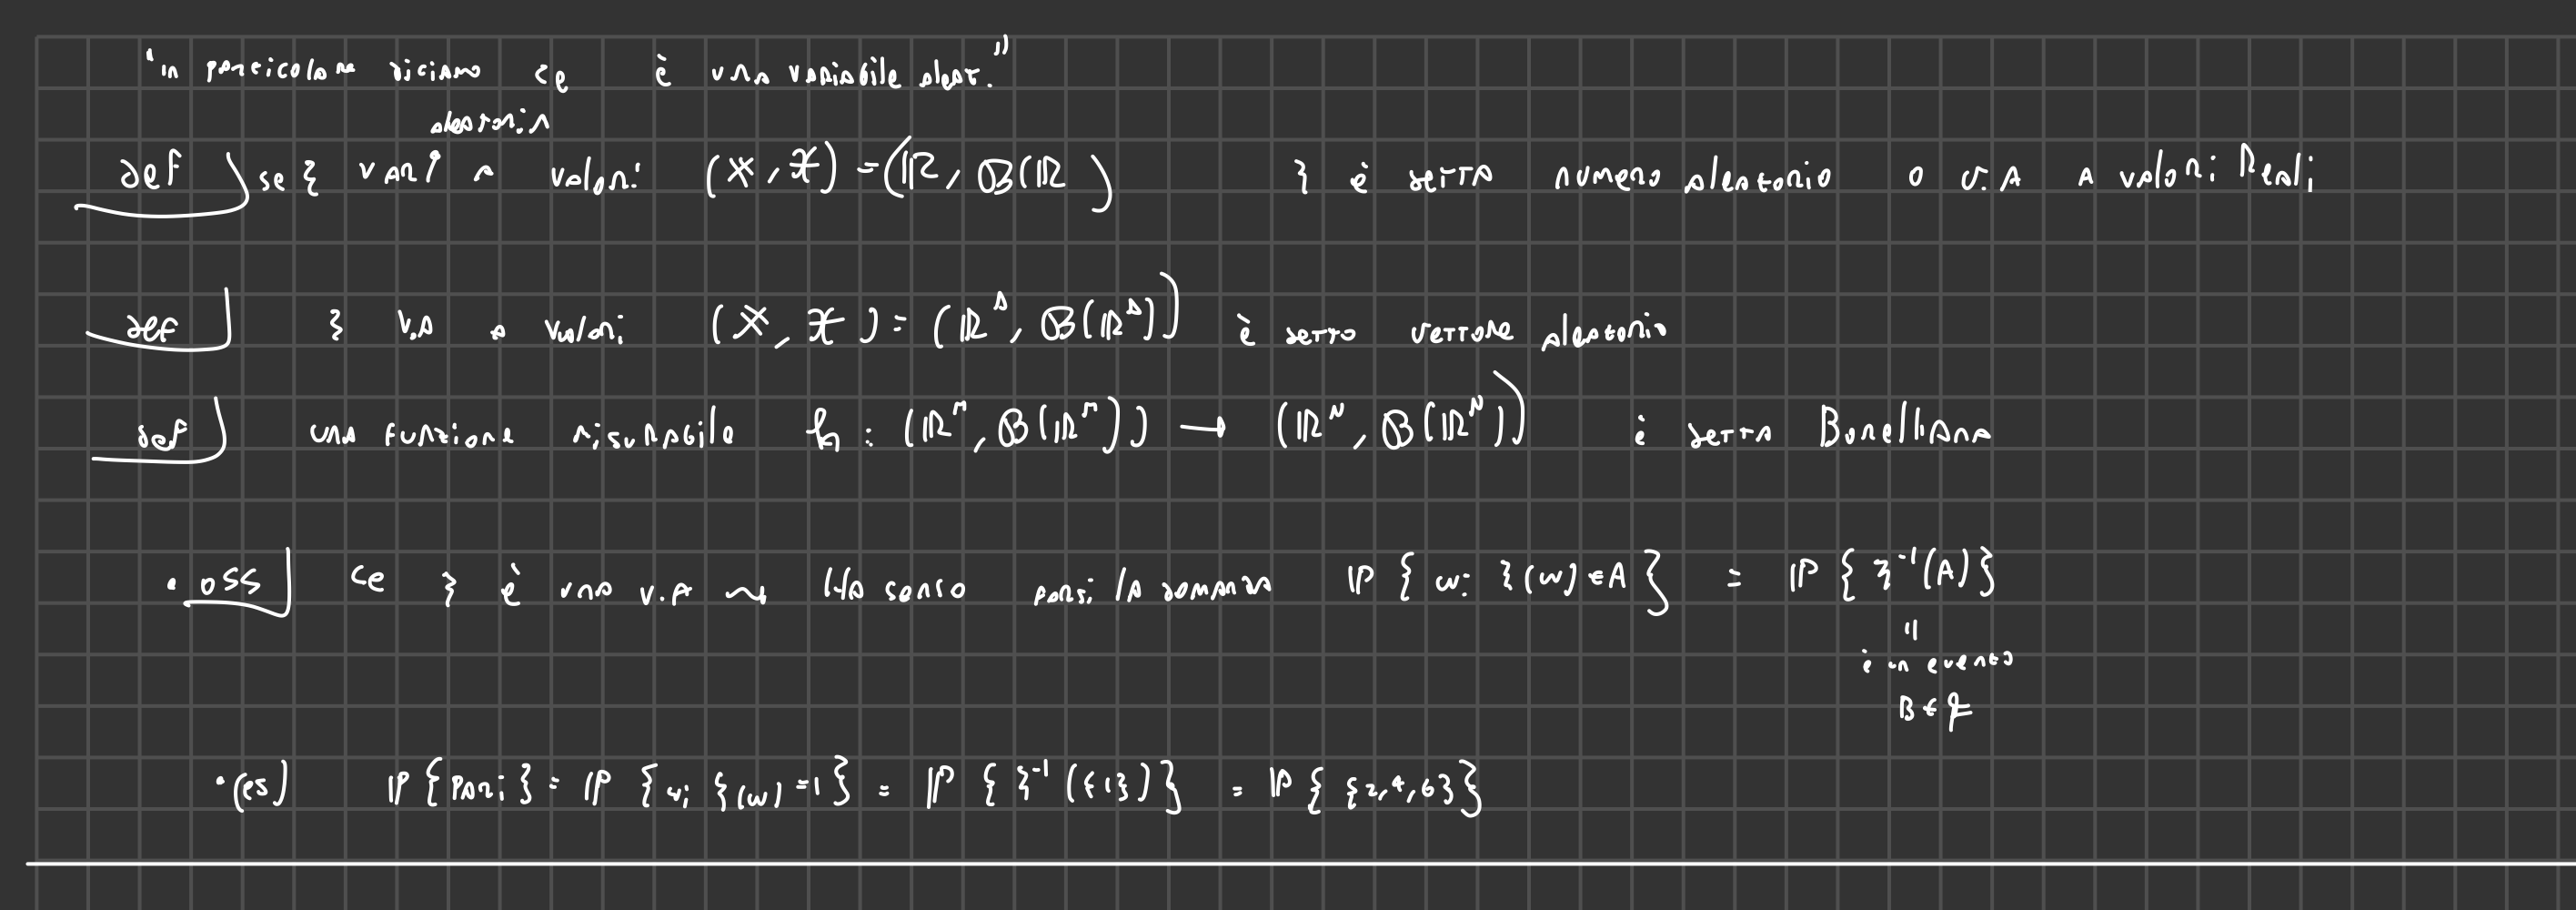 "in particolare diciamo ce è una variabile aleat."
aleatoria
def) se ξ vari a valori (𝕏, 𝒳) = (ℝ, 𝔹(ℝ) ξ è detta numero aleatorio o v.A a valori Reali
def) ξ v.a a valori (𝕏, 𝒳) = (ℝᵈ, 𝔹(ℝᵈ)) è detto vettore aleatorio
def) una funzione misurabile h : (ℝᵐ, 𝔹(ℝᵐ)) → (ℝᴺ, 𝔹(ℝᴺ)) è detta Borelliana
• oss) ce ξ è una v.A ⇝ Ha senso porsi la domanda ℙ { ω: ξ(ω) ∈ A } = ℙ { ξ⁻¹(A) }
"
è un evento
B ∈ ℱ
• (es) ℙ { pari } = ℙ { ω: ξ(ω) = 1 } = ℙ { ξ⁻¹({1}) } = ℙ { {2,4,6} }